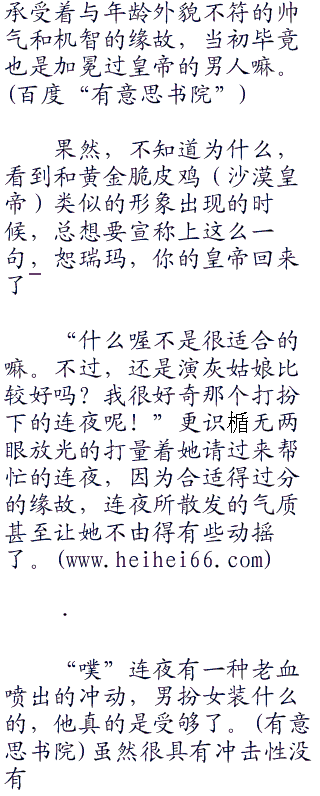 承受着与年龄外貌不符的帅
气和机智的缘故，当初毕竟
也是加冕过皇帝的男人嘛。
(百度“有意思书院”)
果然，不知道为什么，
看到和黄金脆皮鸡（沙漠皇
帝）类似的形象出现的时
候，总想要宣称上这么一
句，恕瑞玛，你的皇帝回来
了~
“什么喔不是很适合的
嘛。不过，还是演灰姑娘比
较好吗？我很好奇那个打扮
下的连夜呢！”更识楯无两
眼放光的打量着她请过来帮
忙的连夜，因为合适得过分
的缘故，连夜所散发的气质
甚至让她不由得有些动摇
了。(www.heihei66.com)
.
“噗”连夜有一种老血
喷出的冲动，男扮女装什么
的，他真的是受够了。(有意
思书院)虽然很具有冲击性没
有